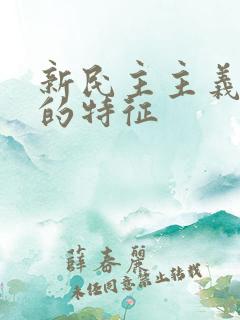 新民主主義
的特征
薛春麗
未经同意禁止转载